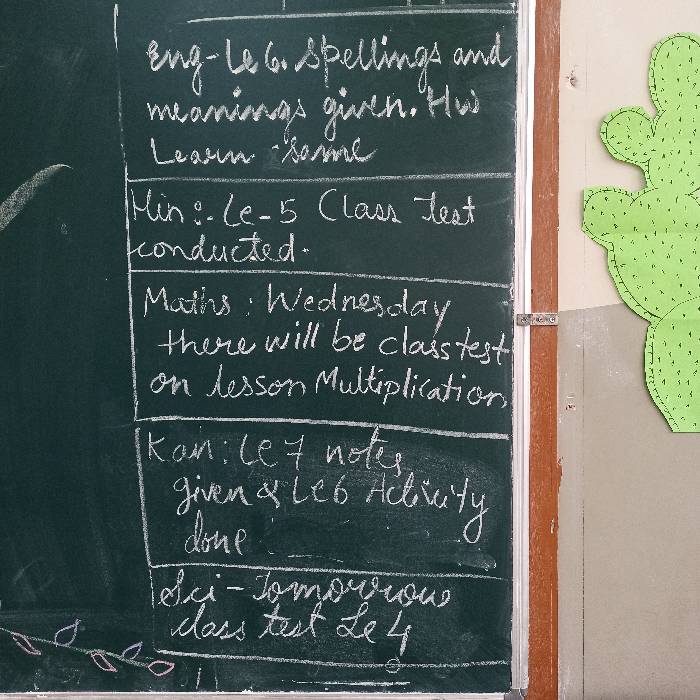 Eng-Le 6. Spellings and
meanings given. Hw
Learn same
Hin:- Le-5 Class Test
conducted.
Maths: Wednesday
there will be class test
on lesson Multiplication
Kan: Le 7 notes
given & Le 6 Activity
done
Sci-Tomorrow
class test Le 4